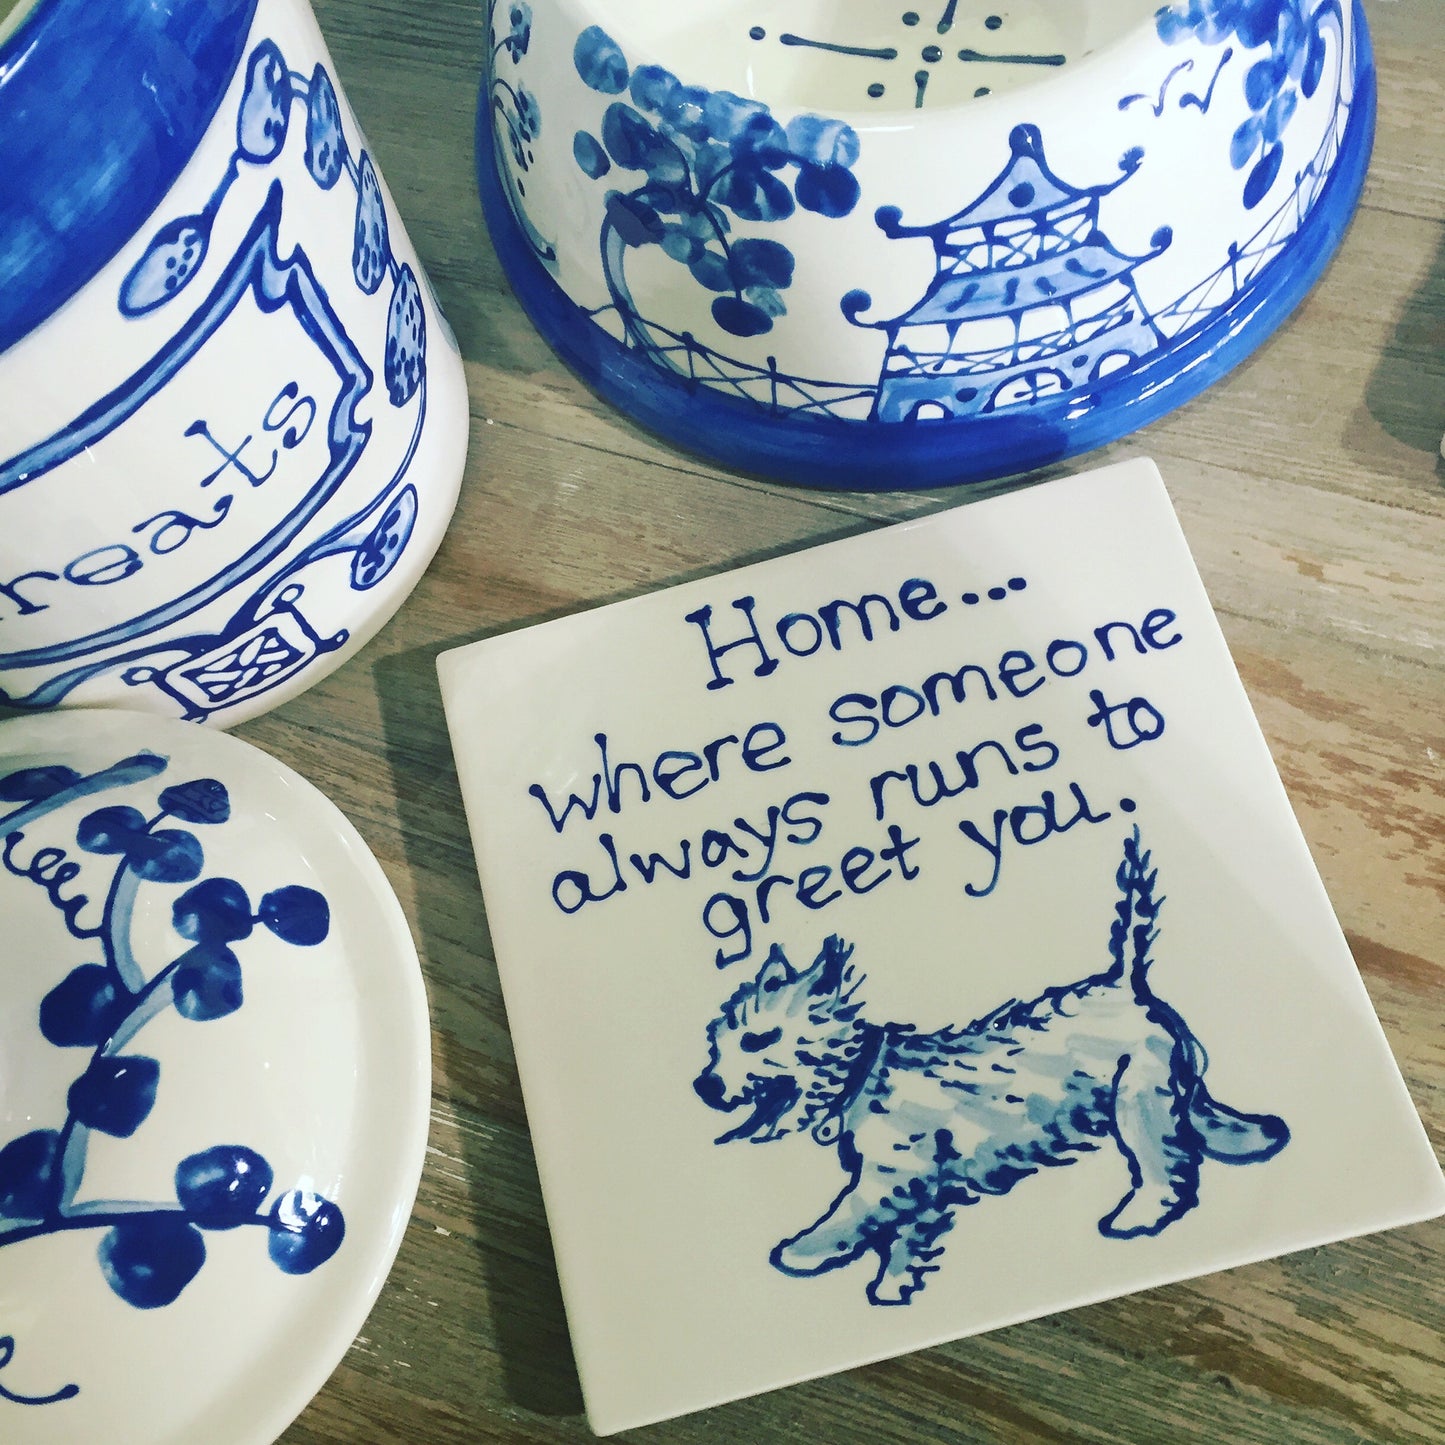 reats
Home...
where someone
always runs to
greet you.